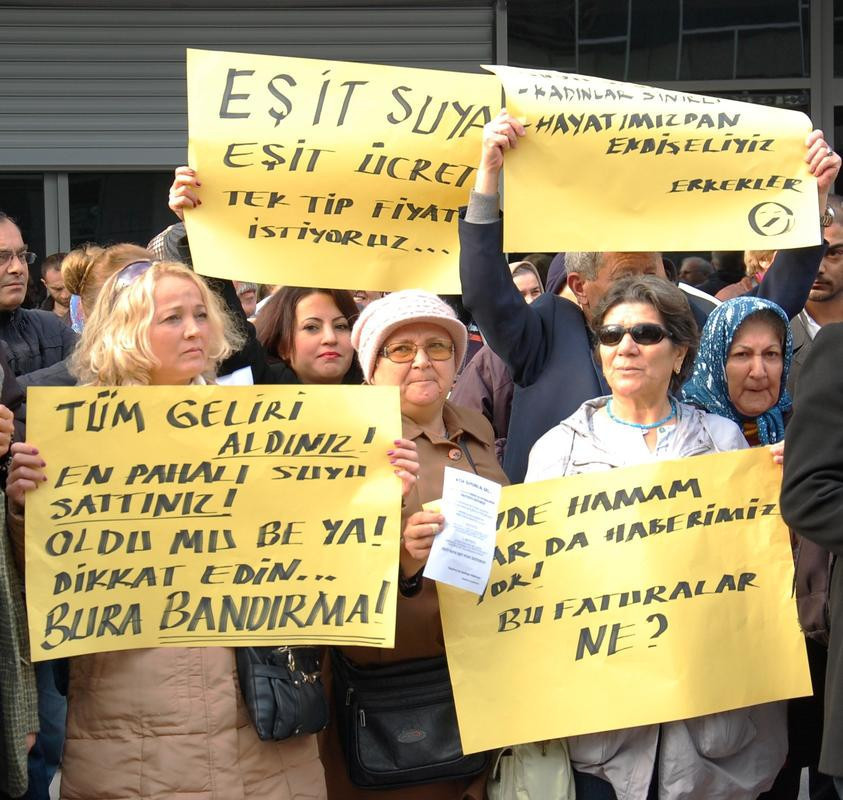 EŞİT SUYA
EŞİT ÜCRET
TEK TİP FİYAT
İSTİYORUZ...
-KADINLAR SİNİRLİ
-HAYATIMIZDAN
ENDİŞELİYİZ
ERKEKLER
TÜM GELİRİ
ALDINIZ!
EN PAHALI SUYU
SATTINIZ!
OLDU MU BE YA!
DİKKAT EDİN...
BURA BANDIRMA!
HAMAM
DA HABERİMİZ
YOK!
BU FATURALAR
NE?